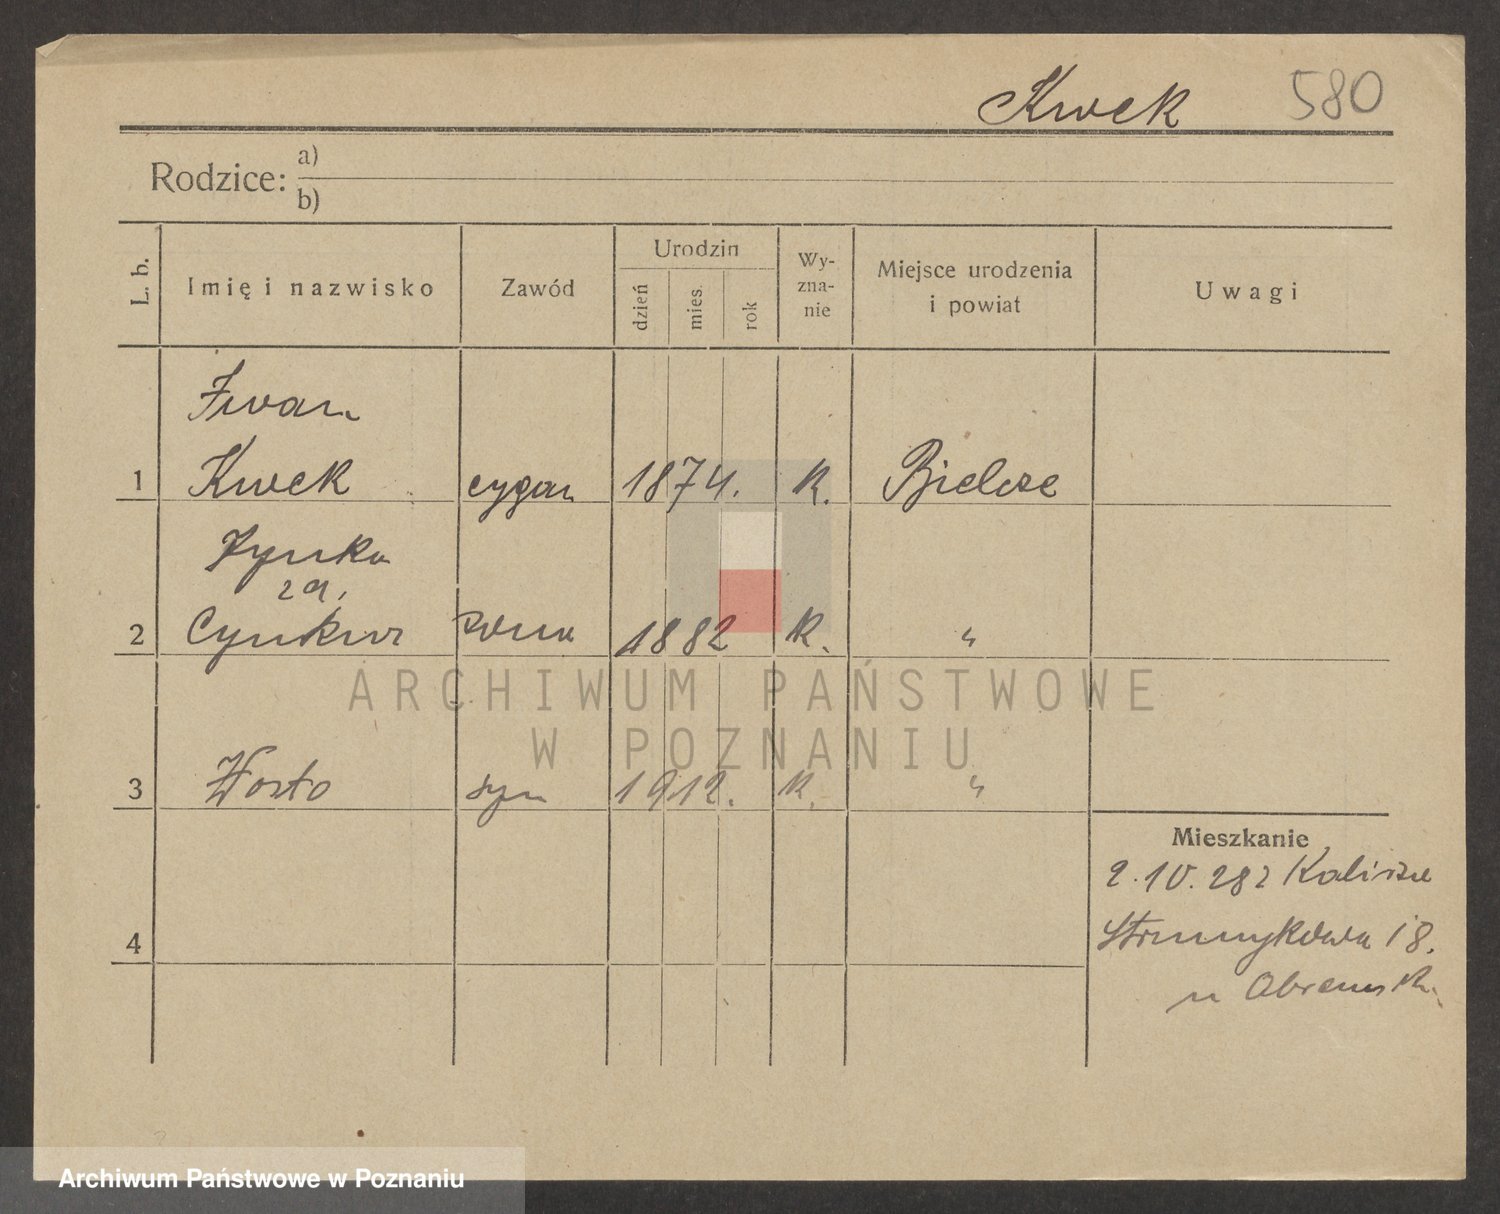 Kwek 580
Rodzice: a)
b)
L. b. Imię i nazwisko Zawód Urodzin dzień mies. rok Wy-zna-nie Miejsce urodzenia i powiat Uwagi
Iwan
1 Kwek cygan 1874. K. Bielcze
Zynka
za.
2 żona 1882 K. "
ARCHIWUM PAŃSTWOWE
W POZNANIU
3 Wosto syn 1912. K. "
Mieszkanie
2.10.28 z Kalisza
4
18.
u
Archiwum Państwowe w Poznaniu